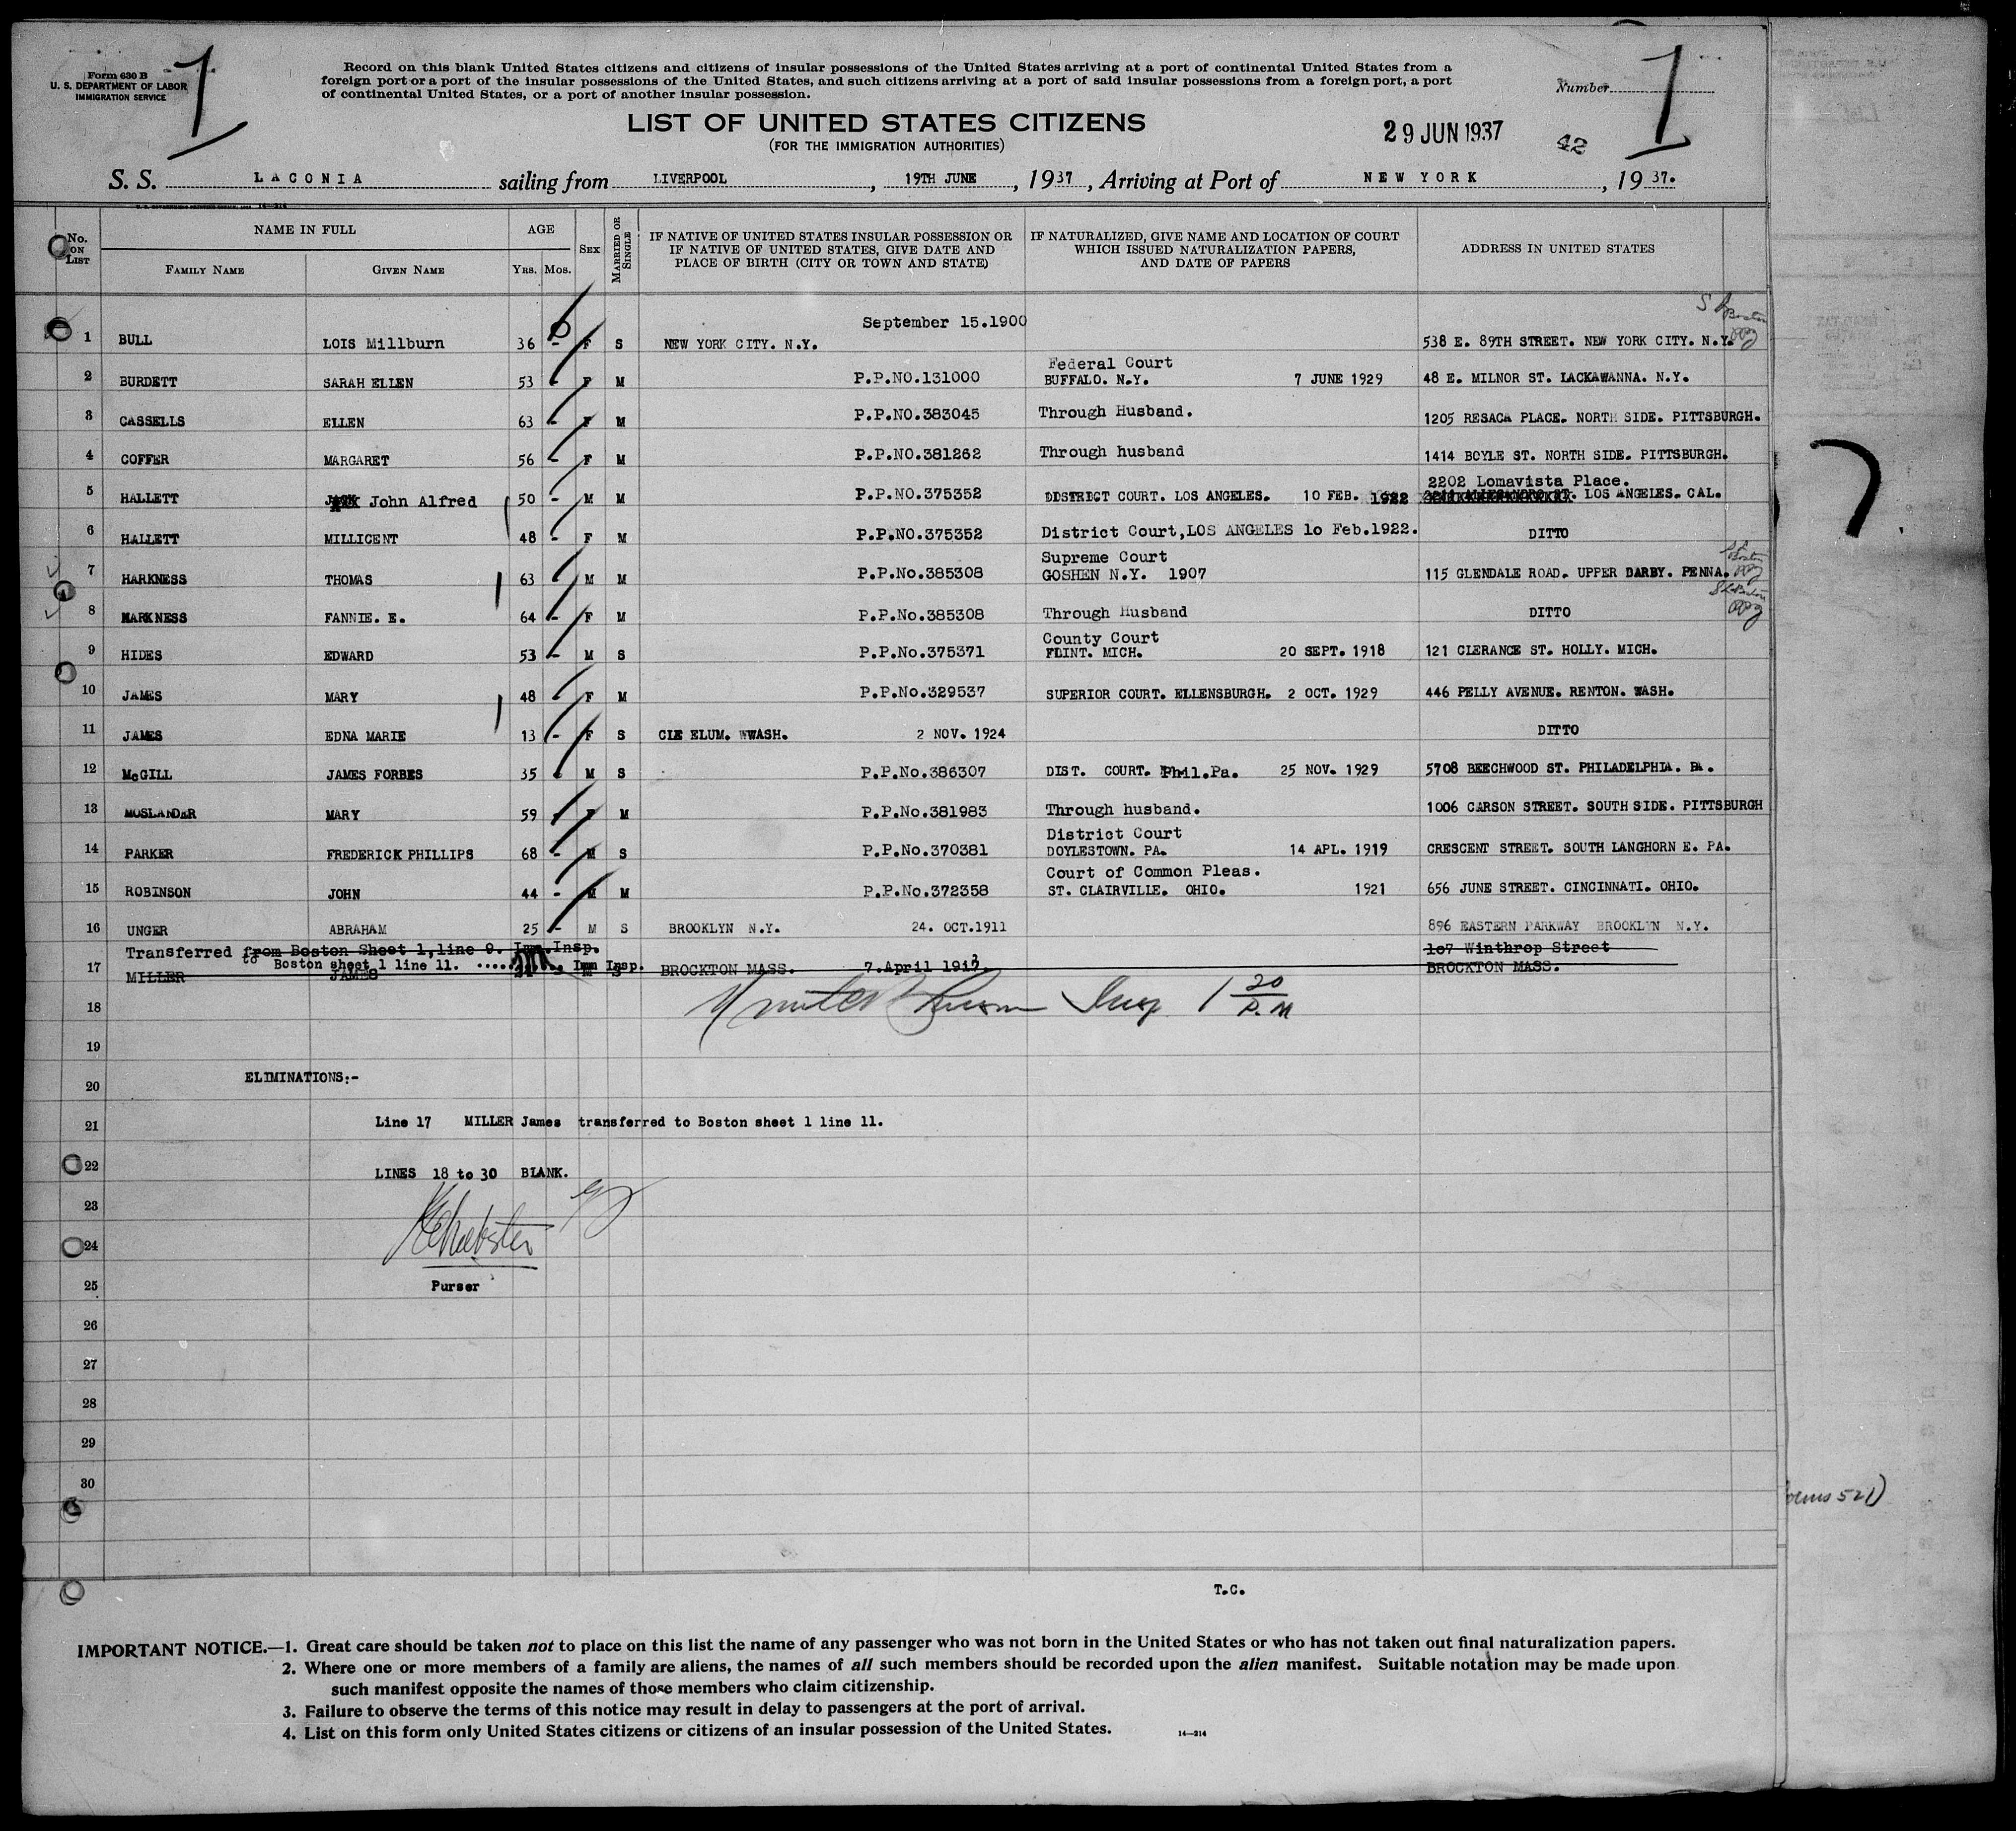 Form 630 B
U. S. DEPARTMENT OF LABOR
IMMIGRATION SERVICE
1
Record on this blank United States citizens and citizens of insular possessions of the United States arriving at a port of continental United States from a
foreign port or a port of the insular possessions of the United States, and such citizens arriving at a port of said insular possessions from a foreign port, a port
of continental United States, or a port of another insular possession.
Number 1
LIST OF UNITED STATES CITIZENS
(FOR THE IMMIGRATION AUTHORITIES)
29 JUN 1937 42
S. S. LACONIA sailing from LIVERPOOL, 19TH JUNE, 1937, Arriving at Port of NEW YORK, 1937.
No. ON LIST
NAME IN FULL
FAMILY NAME GIVEN NAME
AGE
YRS. MOS.
SEX
MARRIED OR SINGLE
IF NATIVE OF UNITED STATES INSULAR POSSESSION OR
IF NATIVE OF UNITED STATES, GIVE DATE AND
PLACE OF BIRTH (CITY OR TOWN AND STATE)
IF NATURALIZED, GIVE NAME AND LOCATION OF COURT
WHICH ISSUED NATURALIZATION PAPERS,
AND DATE OF PAPERS
ADDRESS IN UNITED STATES
September 15.1900
1 BULL LOIS Millburn 36 - F S NEW YORK CITY. N.Y. 538 E. 89TH STREET. NEW YORK CITY. N.Y.
Federal Court
2 BURDETT SARAH ELLEN 53 - F M P.P.NO.131000 BUFFALO. N.Y. 7 JUNE 1929 48 E. MILNOR ST. LACKAWANNA. N.Y.
3 CASSELLS ELLEN 63 - F M P.P.NO.383045 Through Husband. 1205 RESACA PLACE. NORTH SIDE. PITTSBURGH.
4 COFFER MARGARET 56 - F M P.P.NO.381262 Through husband 1414 BOYLE ST. NORTH SIDE. PITTSBURGH.
2202 Lomavista Place.
5 HALLETT JACK John Alfred 50 - M M P.P.NO.375352 DISTRICT COURT. LOS ANGELES. 10 FEB. 1922 LOS ANGELES. CAL.
6 HALLETT MILLICENT 48 - F M P.P.NO.375352 District Court,LOS ANGELES 1o Feb.1922. DITTO
Supreme Court
7 HARKNESS THOMAS 63 - M M P.P.No.385308 GOSHEN N.Y. 1907 115 GLENDALE ROAD. UPPER DARBY. PENNA.
8 HARKNESS FANNIE. E. 64 - F M P.P.No.385308 Through Husband DITTO
County Court
9 HIDES EDWARD 53 - M S P.P.No.375371 FLINT. MICH. 20 SEPT. 1918 121 CLERANCE ST. HOLLY. MICH.
10 JAMES MARY 48 - F M P.P.No.329537 SUPERIOR COURT. ELLENSBURGH. 2 OCT. 1929 446 PELLY AVENUE. RENTON. WASH.
11 JAMES EDNA MARIE 13 - F S CLE ELUM. WWASH. 2 NOV. 1924 DITTO
12 McGILL JAMES FORBES 35 - M S P.P.No.386307 DIST. COURT. Phil.Pa. 25 NOV. 1929 5708 BEECHWOOD ST. PHILADELPHIA. PA.
13 MOSLANDER MARY 59 - F M P.P.No.381983 Through husband. 1006 CARSON STREET. SOUTH SIDE. PITTSBURGH
District Court
14 PARKER FREDERICK PHILLIPS 68 - M S P.P.No.370381 DOYLESTOWN. PA. 14 APL. 1919 CRESCENT STREET. SOUTH LANGHORN E. PA.
Court of Common Pleas.
15 ROBINSON JOHN 44 - M M P.P.No.372358 ST. CLAIRVILLE. OHIO. 1921 656 JUNE STREET. CINCINNATI. OHIO.
16 UNGER ABRAHAM 25 - M S BROOKLYN N.Y. 24. OCT.1911 896 EASTERN PARKWAY BROOKLYN N.Y.
Transferred from Boston Sheet 1,line 9. Imm.Insp. 1o7 Winthrop Street
to Boston sheet 1 line 11. ..... Imm Insp.
17 MILLER JAMES M S BROCKTON MASS. 7.April 1913. BROCKTON MASS.
18 Insp 1 30 P.M
19
20 ELIMINATIONS:-
21 Line 17 MILLER James transferred to Boston sheet 1 line 11.
22 LINES 18 to 30 BLANK.
23
24
25 Purser
26
27
28
29
30
T.C.
IMPORTANT NOTICE.—1. Great care should be taken not to place on this list the name of any passenger who was not born in the United States or who has not taken out final naturalization papers.
2. Where one or more members of a family are aliens, the names of all such members should be recorded upon the alien manifest. Suitable notation may be made upon
such manifest opposite the names of those members who claim citizenship.
3. Failure to observe the terms of this notice may result in delay to passengers at the port of arrival.
4. List on this form only United States citizens or citizens of an insular possession of the United States.
14—214